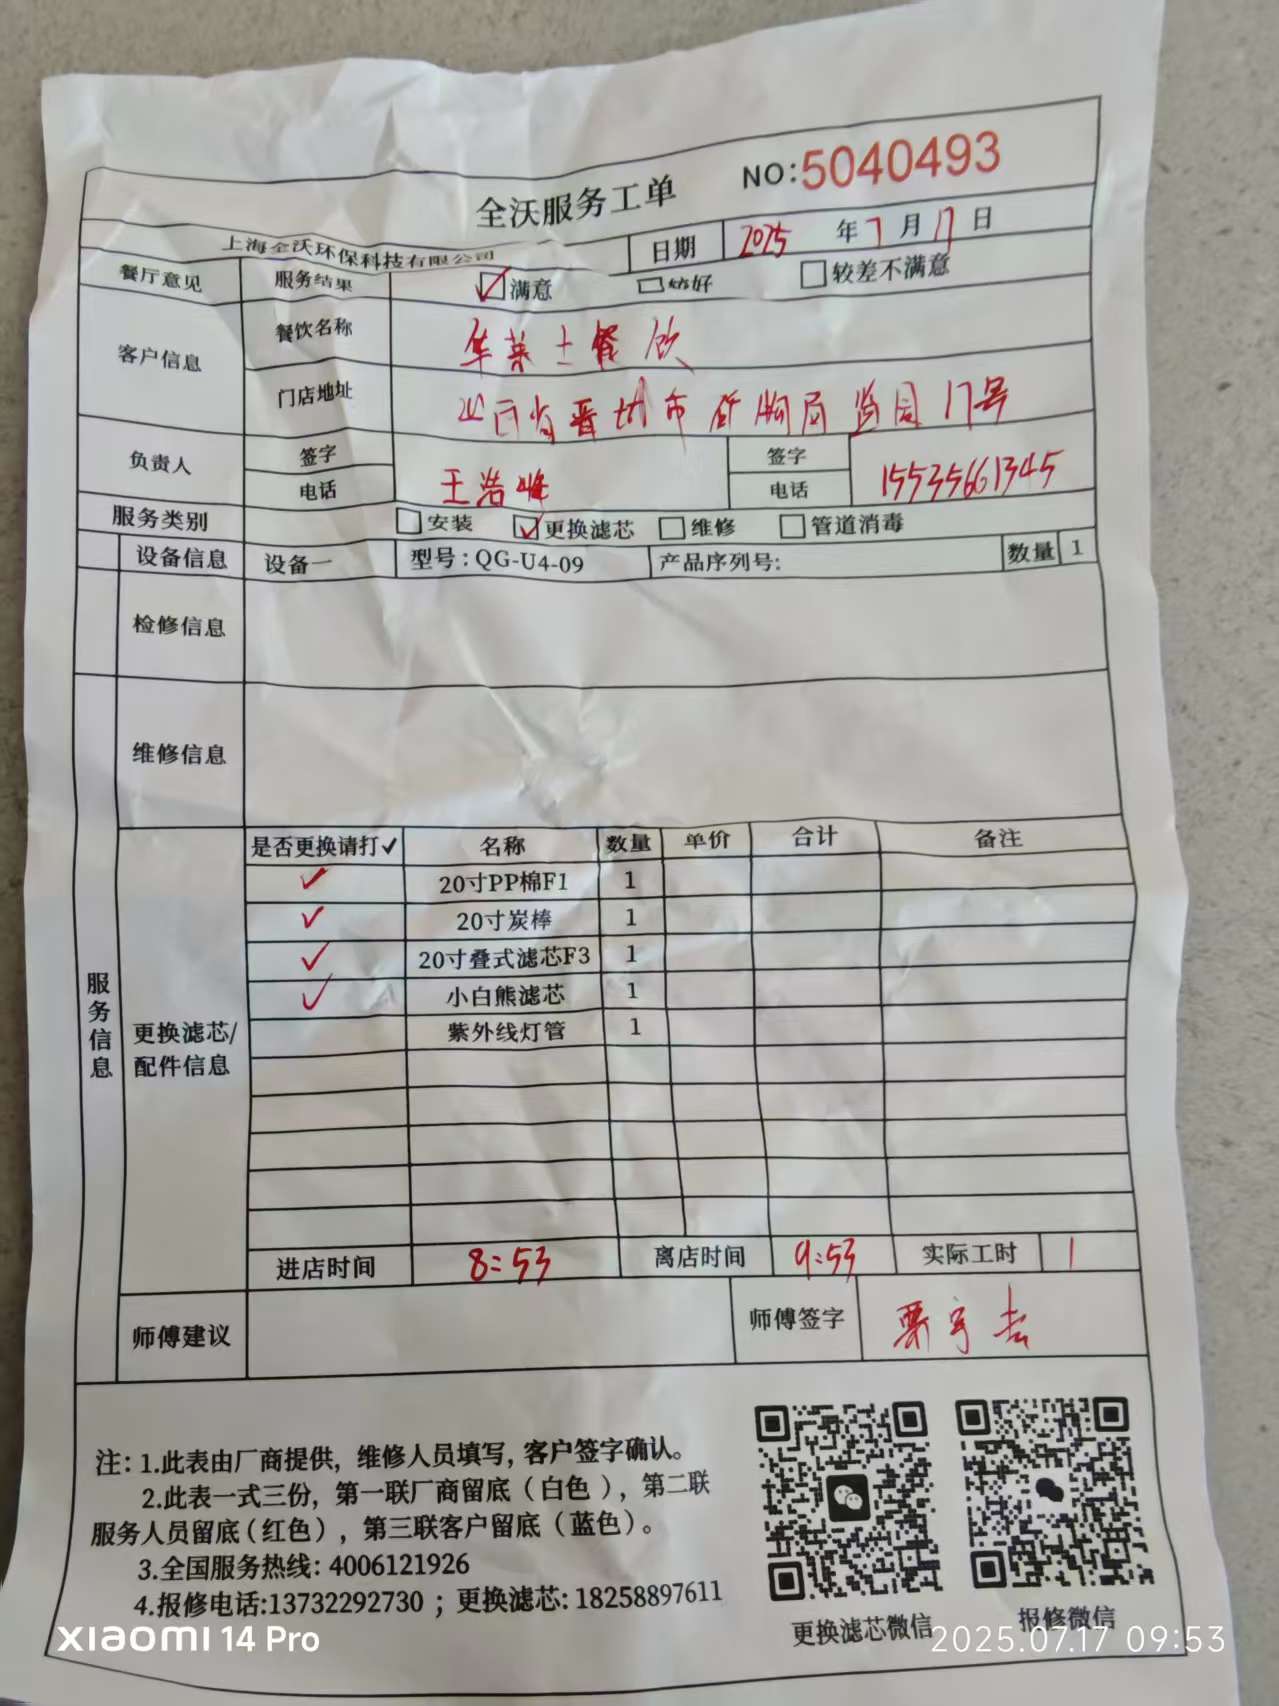 全沃服务工单 NO:5040493
上海全沃环保科技有限公司 日期 2025 年 7 月 17 日
餐厅意见 服务结果 满意 较好 较差不满意
客户信息 餐饮名称 华莱士餐饮
门店地址 山西省晋城市矿务局 园 17号
负责人 签字 王浩峰 签字
电话 电话 15535661345
服务类别 安装 更换滤芯 维修 管道消毒
设备信息 设备一 型号:QG-U4-09 产品序列号: 数量 1
检修信息
维修信息
服务信息
更换滤芯/
配件信息
是否更换请打✓ 名称 数量 单价 合计 备注
✓ 20寸PP棉F1 1
✓ 20寸炭棒 1
✓ 20寸叠式滤芯F3 1
✓ 小白熊滤芯 1
紫外线灯管 1
进店时间 8:53 离店时间 9:53 实际工时 1
师傅建议 师傅签字
注: 1.此表由厂商提供, 维修人员填写, 客户签字确认。
2.此表一式三份, 第一联厂商留底 (白色), 第二联
服务人员留底(红色), 第三联客户留底 (蓝色)。
3.全国服务热线: 4006121926
4.报修电话:13732292730 ; 更换滤芯: 18258897611
更换滤芯微信 报修微信
XIAOMI 14 Pro 2025.07.17 09:53